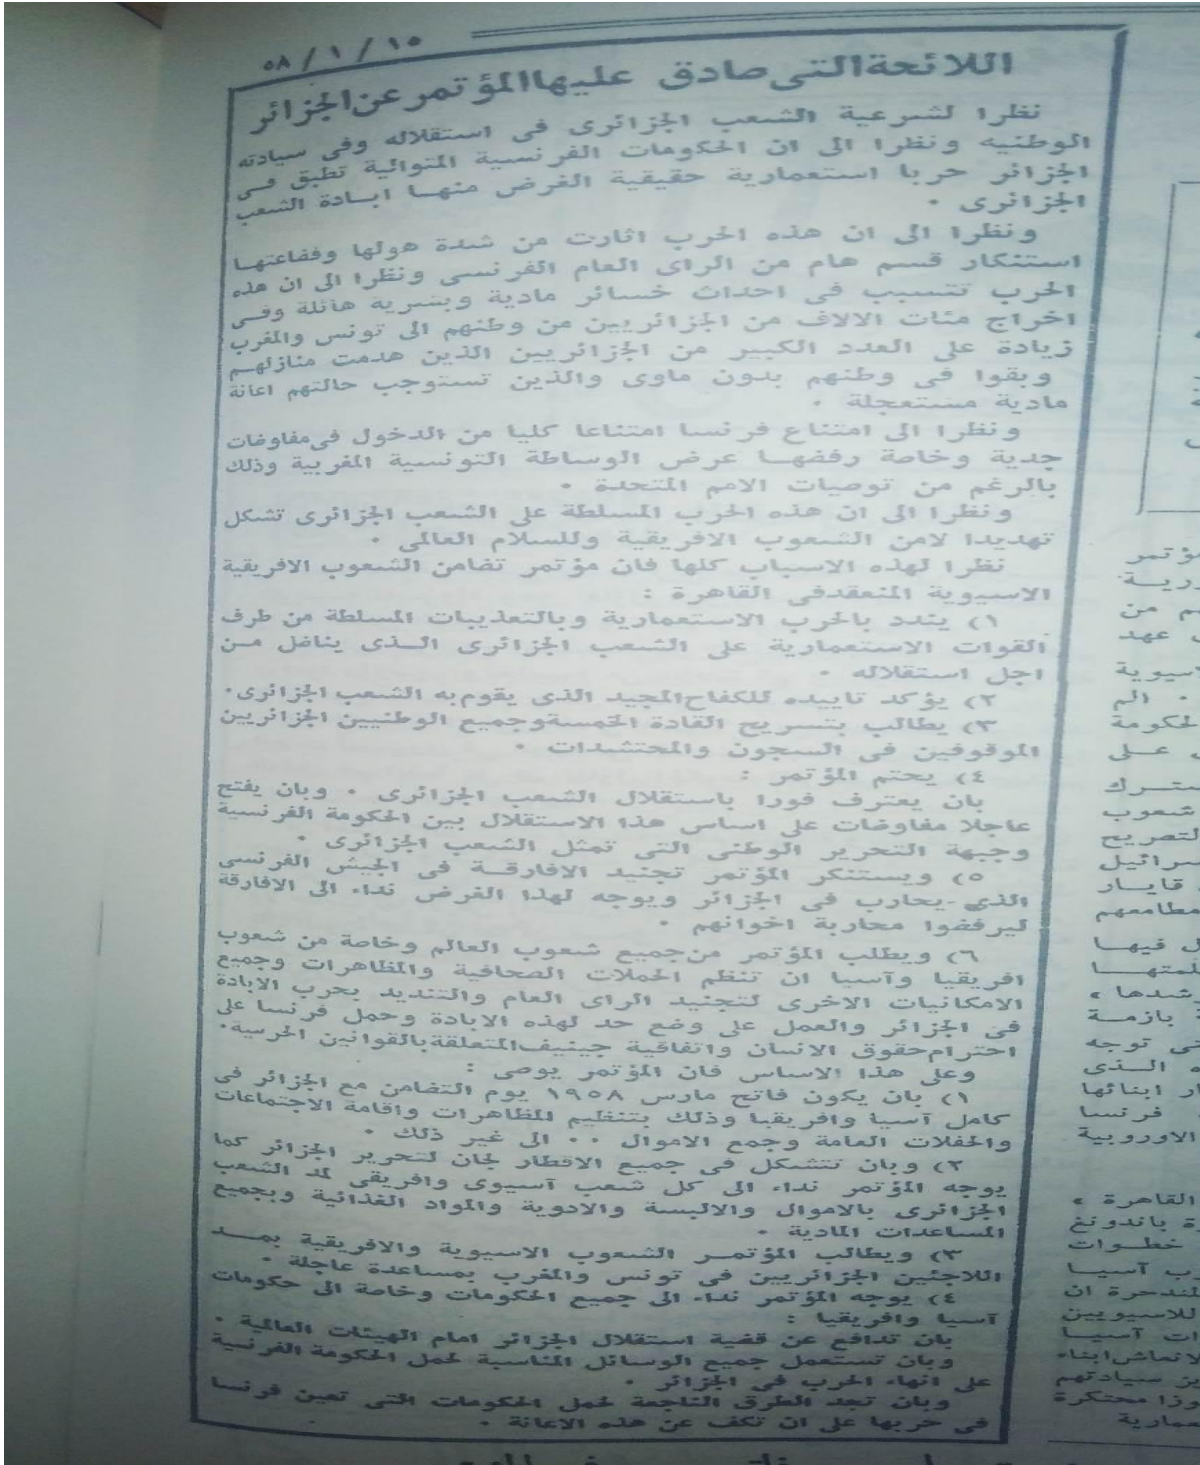 ٥٨ / ١ / ١٥
اللائحة التى صادق عليها المؤتمر عن الجزائر
نظرا لشرعية الشعب الجزائرى فى استقلاله وفى سيادته
الوطنيه ونظرا الى ان الحكومات الفرنسية المتوالية تطبق فى
الجزائر حربا استعمارية حقيقية الغرض منها ابادة الشعب
الجزائرى ٠
ونظرا الى ان هذه الحرب اثارت من شدة هولها وفضاعتها
استنكار قسم هام من الراى العام الفرنسى ونظرا الى ان هذه
الحرب تتسبب فى احداث خسائر مادية وبشرية هائلة وفى
اخراج مئات الالاف من الجزائريين من وطنهم الى تونس والمغرب
زيادة على العدد الكبير من الجزائريين الذين هدمت منازلهم
وبقوا فى وطنهم بدون ماوى والذين تستوجب حالتهم اعانة
مادية مستعجلة ٠
ونظرا الى امتناع فرنسا امتناعا كليا من الدخول فى مفاوضات
جدية وخاصة رفضها عرض الوساطة التونسية المغربية وذلك
بالرغم من توصيات الامم المتحدة ٠
ونظرا الى ان هذه الحرب المسلطة على الشعب الجزائرى تشكل
تهديدا لامن الشعوب الافريقية وللسلام العالمى ٠
نظرا لهذه الاسباب كلها فان مؤتمر تضامن الشعوب الافريقية
الاسيوية المنعقد فى القاهرة :
١) يندد بالحرب الاستعمارية وبالتعذيبات المسلطة من طرف
القوات الاستعمارية على الشعب الجزائرى الذى يناضل من
اجل استقلاله ٠
٢) يؤكد تاييده للكفاح المجيد الذى يقوم به الشعب الجزائرى٠
٣) يطالب بتسريح القادة الخمسة وجميع الوطنيين الجزائريين
الموقوفين فى السجون والمحتشدات ٠
٤) يحتم المؤتمر :
بان يعترف فورا باستقلال الشعب الجزائرى ٠ وبان يفتح
عاجلا مفاوضات على اساس هذا الاستقلال بين الحكومة الفرنسية
وجبهة التحرير الوطنى التى تمثل الشعب الجزائرى ٠
٥) ويستنكر المؤتمر تجنيد الافارقة فى الجيش الفرنسى
الذى يحارب فى الجزائر ويوجه لهذا الغرض نداء الى الافارقة
ليرفضوا محاربة اخوانهم ٠
٦) ويطلب المؤتمر من جميع شعوب العالم وخاصة من شعوب
افريقيا وآسيا ان تنظم الحملات الصحافية والمظاهرات وجميع
الامكانيات الاخرى لتجنيد الراى العام والتنديد بحرب الابادة
فى الجزائر والعمل على وضع حد لهذه الابادة وحمل فرنسا على
احترام حقوق الانسان واتفاقية جينيف المتعلقة بالقوانين الحربية٠
وعلى هذا الاساس فان المؤتمر يوصى :
١) بان يكون فاتح مارس ١٩٥٨ يوم التضامن مع الجزائر فى
كامل آسيا وافريقيا وذلك بتنظيم المظاهرات واقامة الاجتماعات
والحفلات العامة وجمع الاموال ٠٠ الى غير ذلك ٠
٢) وبان تتشكل فى جميع الاقطار لجان لتحرير الجزائر كما
يوجه المؤتمر نداء الى كل شعب آسيوى وافريقى لمد الشعب
الجزائرى بالاموال والالبسة والادوية والمواد الغذائية وبجميع
المساعدات المادية ٠
٣) ويطالب المؤتمر الشعوب الاسيوية والافريقية بمد
اللاجئين الجزائريين فى تونس والمغرب بمساعدة عاجلة ٠
٤) يوجه المؤتمر نداء الى جميع الحكومات وخاصة الى حكومات
آسيا وافريقيا :
بان تدافع عن قضية استقلال الجزائر امام الهيئات العالمية ٠
وبان تستعمل جميع الوسائل المناسبة لحمل الحكومة الفرنسية
على انهاء الحرب فى الجزائر ٠
وبان تجد الطرق الناجعة لحمل الحكومات التى تعين فرنسا
فى حربها على ان تكف عن هذه الاعانة ٠
م من
عهد
اسيوية
٠ الم
لحكومة
على
شعوب
التصريح
قايار
مطامعهم
فيها
شدها ،
بازمة
توجه
الذى
ابنائها
فرنسا
الاوروبية
القاهرة ،
باندونغ
خطوات
آسيا
المندحرة ان
للاسيويين
آسيا
سيادتهم
محتكرة